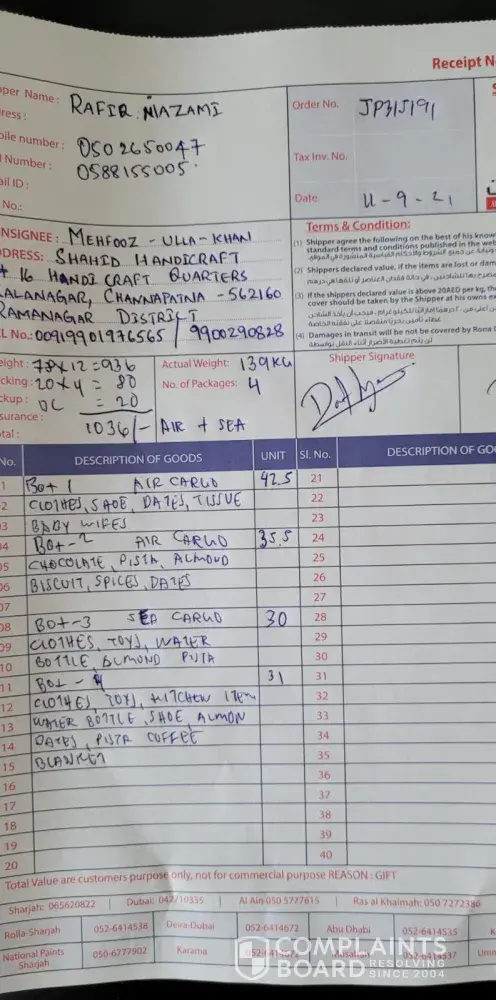 Receipt N
pper Name: RAFIR NAZAMI
ress:
bile number: 0502650047
l Number: 0588155005
ail ID:
No.:
Order No. JP315191
Tax Inv. No.
Date 11-9-21
NSIGNEE: MEHFOOZ - ULLA - KHAN
DRESS: SHAHID HANDICRAFT
# 16 HANDI CRAFT QUARTERS
LALANAGAR, CHANNAPATNA - 562160
RAMANAGAR DISTRICT
L No.: 00919901976565 / 9900290828
Terms & Condition:
(1) Shipper agree the following on the best of his know
standard terms and conditions published in the we
(2) Shippers declared value, if the items are lost or dam
(3) if the shippers declared value is above 20AED per kg, the
cover should be taken by the Shipper at his owns e
(4) Damages in transit will be not be covered by Rona
eight: 78x12=936
cking: 20x4=80
ckup: OC =20
surance:
tal: 1036/- AIR + SEA
Actual Weight: 139KG
No. of Packages: 4
Shipper Signature
No. DESCRIPTION OF GOODS UNIT Sl. No. DESCRIPTION OF GOO
1 Box 1 AIR CARGO 42.5 21
2 CLOTHES, SHOE, DATES, TISSUE 22
3 BABY WIPES 23
04 Box-2 AIR CARGO 35.5 24
05 CHOCOLATE, PISTA, ALMOND 25
06 BISCUIT, SPICES, DATES 26
07 27
08 Box-3 SEA CARGO 30 28
09 CLOTHES, TOYS, WATER 29
10 BOTTLE, ALMOND PISTA 30
11 Box - 4 31 31
12 CLOTHES, TOYS, KITCHEN ITEM 32
13 WATER BOTTLE, SHOE, ALMON 33
14 DATES, PISTA COFFEE 34
15 BLANKET 35
16 36
17 37
18 38
19 39
20 40
Total Value are customers purpose only, not for commercial purpose REASON : GIFT
Sharjah: 065620822 | Dubai: 042710335 | Al Ain 050 5777615 | Ras al Khaimah: 050 7272386
Rolla-Sharjah 052-6414538 Deira-Dubai 052-6414672 Abu Dhabi 052-6414535 K
National Paints Sharjah 050-6777902 Karama Musaffah 052-6414537 Umm
COMPLAINTS
BOARD RESOLVING
SINCE 2004